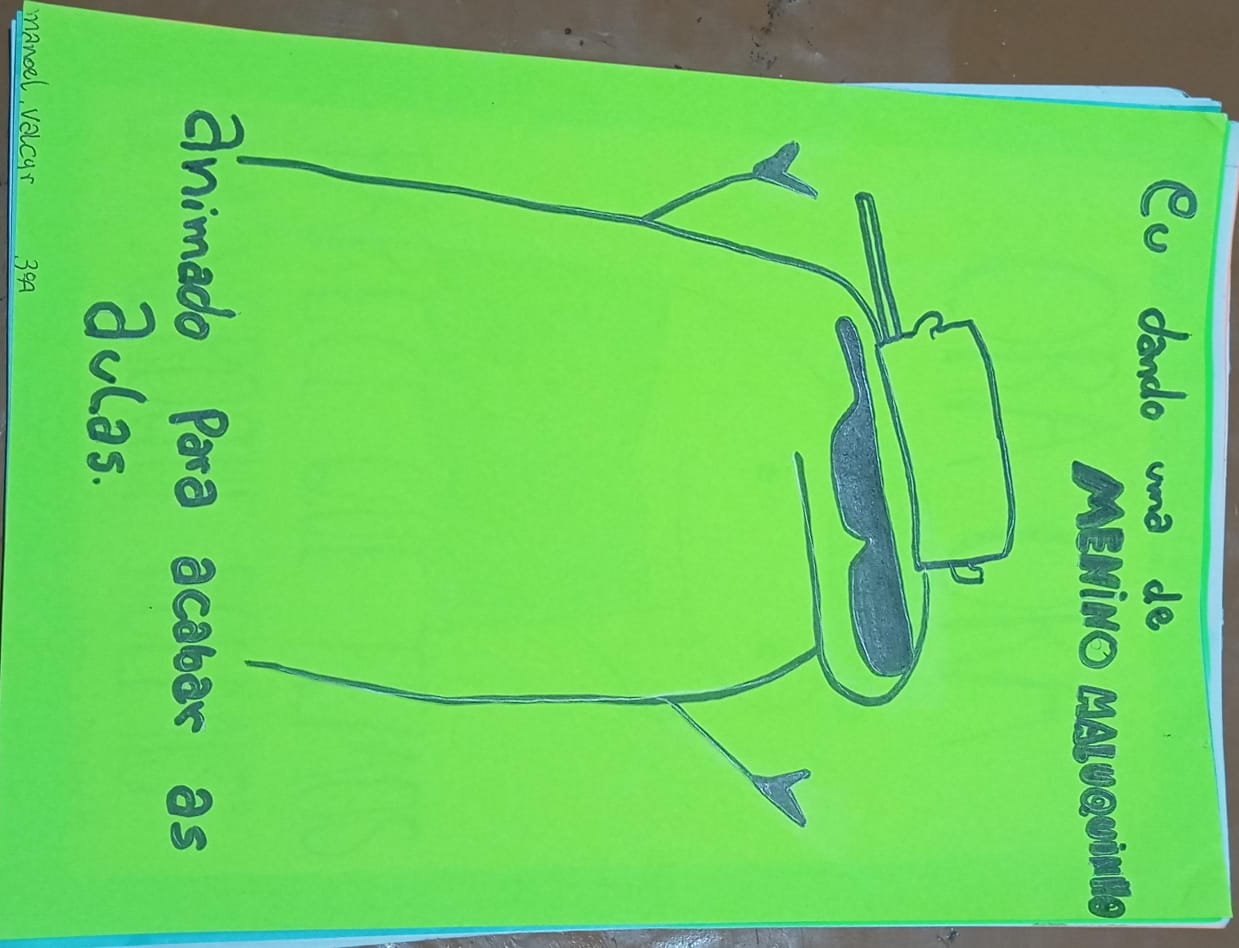 Eu dando uma de
MENINO MALUQUINHO
animado para acabar as
aulas.
manoel, valcyr 39A